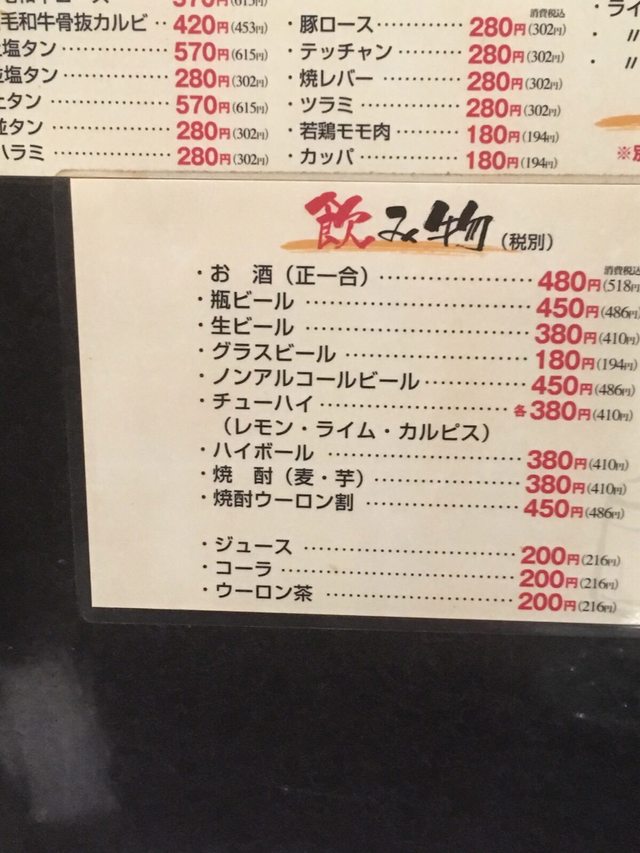 570円(615円)
毛和牛骨抜カルビ‥420円(453円)
塩タン‥‥‥‥‥‥570円(615円)
塩タン‥‥‥‥‥‥280円(302円)
タン‥‥‥‥‥‥570円(615円)
並タン‥‥‥‥‥‥280円(302円)
ハラミ‥‥‥‥‥‥280円(302円)
消費税込
・豚ロース‥‥‥‥‥280円(302円)
・テッチャン‥‥‥‥280円(302円)
・焼レバー‥‥‥‥‥280円(302円)
・ツラミ‥‥‥‥‥‥280円(302円)
・若鶏モモ肉‥‥‥‥180円(194円)
・カッパ‥‥‥‥‥‥180円(194円)
・ライ
・〃
・〃
※別
飲み物(税別)
消費税込
・お 酒(正一合)‥‥‥‥‥‥480円(518円
・瓶ビール‥‥‥‥‥‥‥‥450円(486円)
・生ビール‥‥‥‥‥‥‥‥380円(410円)
・グラスビール‥‥‥‥‥‥180円(194円)
・ノンアルコールビール‥‥‥450円(486円)
・チューハイ‥‥‥‥‥‥各380円(410円)
(レモン・ライム・カルピス)
・ハイボール‥‥‥‥‥‥‥380円(410円)
・焼 酎(麦・芋)‥‥‥‥‥380円(410円)
・焼酎ウーロン割‥‥‥‥‥450円(486円)
・ジュース‥‥‥‥‥‥‥‥200円(216円)
・コーラ‥‥‥‥‥‥‥‥‥200円(216円)
・ウーロン茶‥‥‥‥‥‥‥200円(216円)